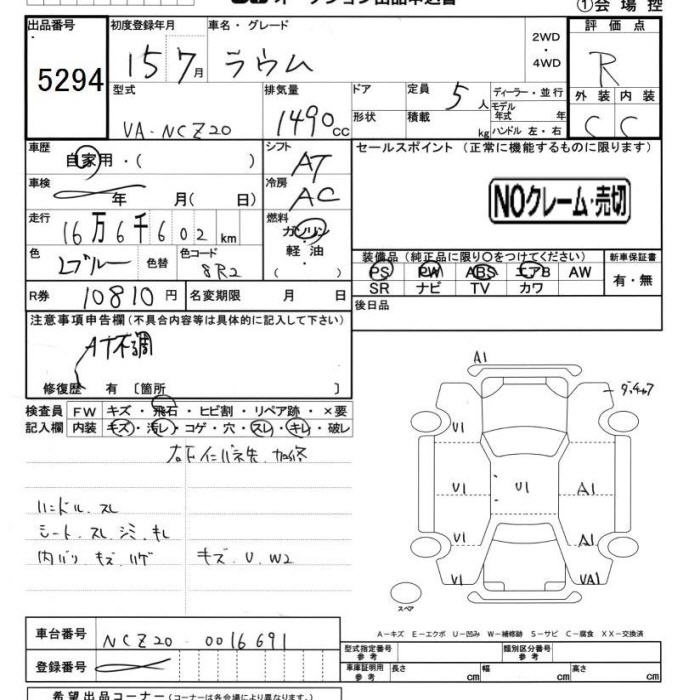 オークション出品申込書
①会場控
出品番号 初度登録年月 車名・グレード 2WD ・ 4WD 評価点
5294 15 7月 ラウム R
型式 排気量 ドア 定員 5人 ディーラー・並行 外装 内装
VA-NCZ20 1490cc 形状 積載 kg モデル年式 年 ハンドル 左・右 C C
車歴 自家用・( ) シフト AT セールスポイント (正常に機能するものに限ります)
車検 年 月( 日) 冷房 AC NOクレーム・売切
走行 16万6千602km 燃料 ガソリン・軽油 ( )
色 Lブルー 色替 色コード 8R2
装備品(純正品に限り○をつけてください) 新車保証書
PS PW ABS エアB AW 有・無
SR ナビ TV カワ
R券 10810円 名変期限 月 日 後日品
注意事項申告欄(不具合内容等は具体的に記入して下さい)
AT不調
修復歴 有 〔箇所 〕
検査員 FW キズ・飛石・ヒビ割・リペア跡・×要
記入欄 内装 キズ・汚レ・コゲ・穴・スレ・キレ・破レ
ハンドル スレ
シート、スレ、シミ、キレ
内バリ、キズ、ハゲ キズ、U、W2
A1
U1
U1 U1 A1
U1 A1
U1 UA1
スペア
A-キズ E-エクボ U-凹み W-補修跡 S-サビ C-腐食 XX-交換済
車台番号 NCZ20-0016691
登録番号
型式指定番号 参考 類別区分番号 参考
車庫証明用 参考 長さ cm 幅 cm 高さ cm
希望出品コーナー(コーナーは各会場により異なります。)